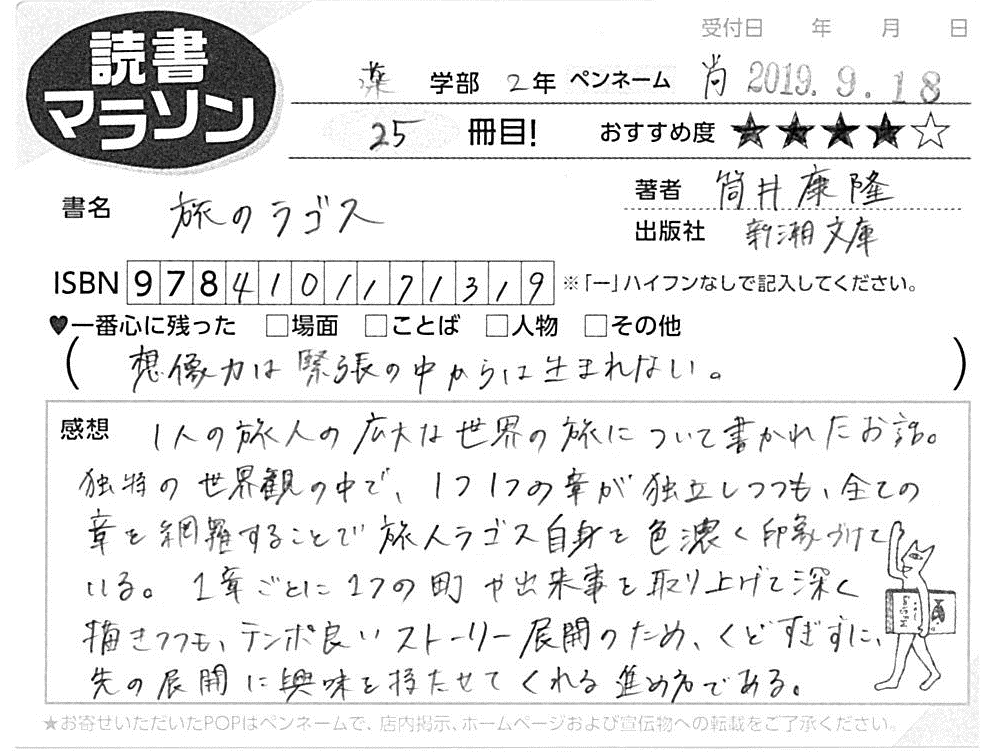 読書
マラソン
受付日 年 月 日
薬 学部 2年 ペンネーム 尚 2019.9.18
25 冊目! おすすめ度 ★★★★☆
書名 旅のラゴス
著者 筒井康隆
出版社 新潮文庫
ISBN 9784101171319 ※「ー」ハイフンなしで記入してください。
♥一番心に残った □場面 □ことば □人物 □その他
(想像力は緊張の中からは生まれない。)
感想 1人の旅人の広大な世界の旅について書かれたお話。
独特の世界観の中で、1つ1つの章が独立しつつも、全ての
章を網羅することで旅人ラゴス自身を色濃く印象づけて
いる。1章ごとに1つの町や出来事を取り上げて深く
描きつつも、テンポ良いストーリー展開のため、くどすぎずに、
先の展開に興味を持たせてくれる進め方である。
★お寄せいただいたPOPはペンネームで、店内掲示、ホームページおよび宣伝物への転載をご了承ください。